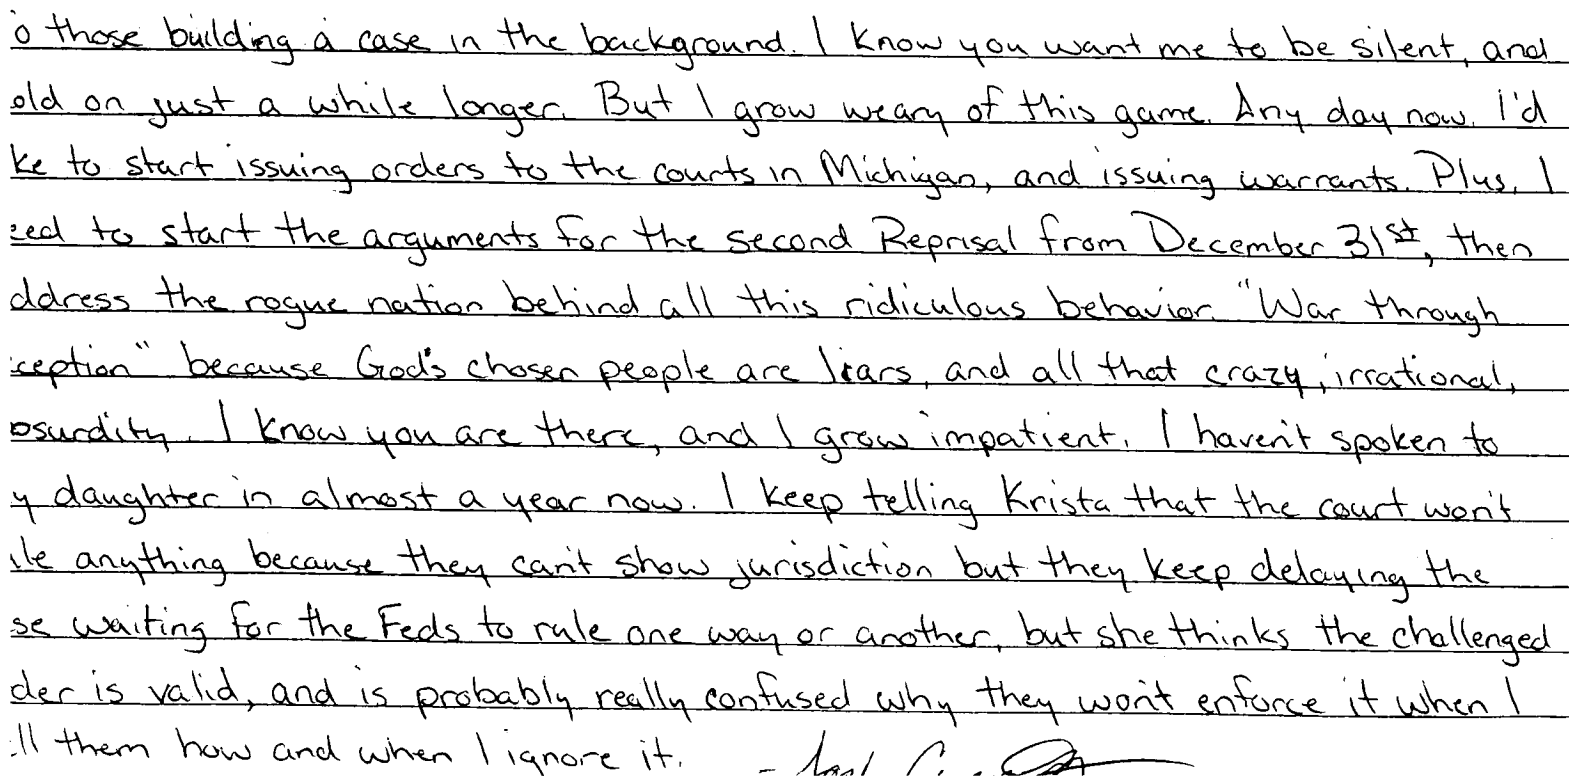 o those building a case in the background. I know you want me to be silent, and
old on just a while longer. But I grow weary of this game. Any day now. I'd
ke to start issuing orders to the courts in Michigan, and issuing warrants. Plus, I
eed to start the arguments for the second Reprisal from December 31st, then
ddress the rogue nation behind all this ridiculous behavior. "War through
ception" because God's chosen people are liars, and all that crazy, irrational,
bsurdity. I know you are there, and I grow impatient. I haven't spoken to
y daughter in almost a year now. I keep telling Krista that the court won't
ule anything because they can't show jurisdiction but they keep delaying the
se waiting for the Feds to rule one way or another, but she thinks the challenged
der is valid, and is probably really confused why they won't enforce it when I
ll them how and when I ignore it. -